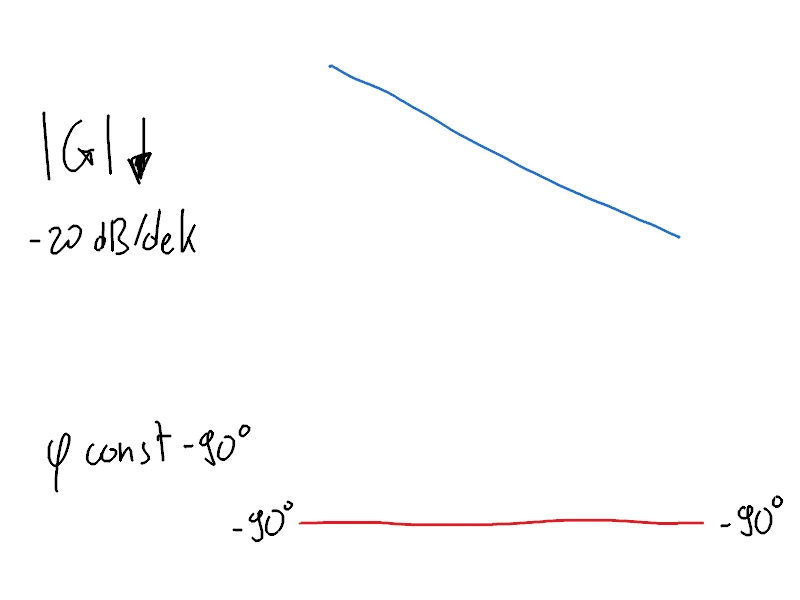 |G|↓
-20 dB/dek
φ const -90°
-90°
-90°